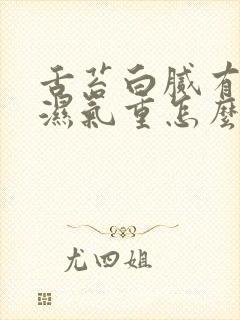 舌苔白腻有
濕氣重怎麼
尤四姐